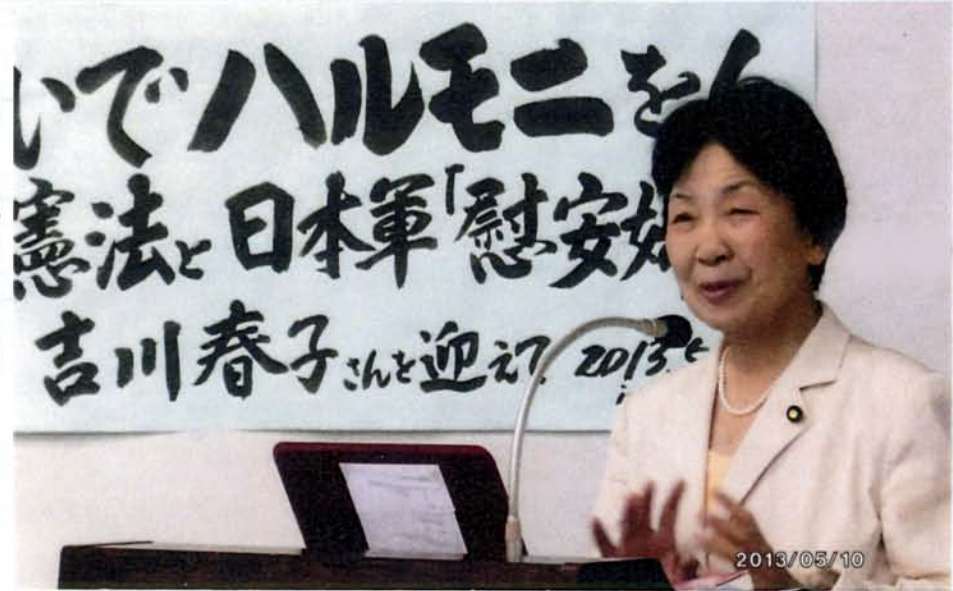 いでハルモニを
憲法と日本軍「慰安婦
吉川春子さんを迎えて 2013.5
2013/05/10